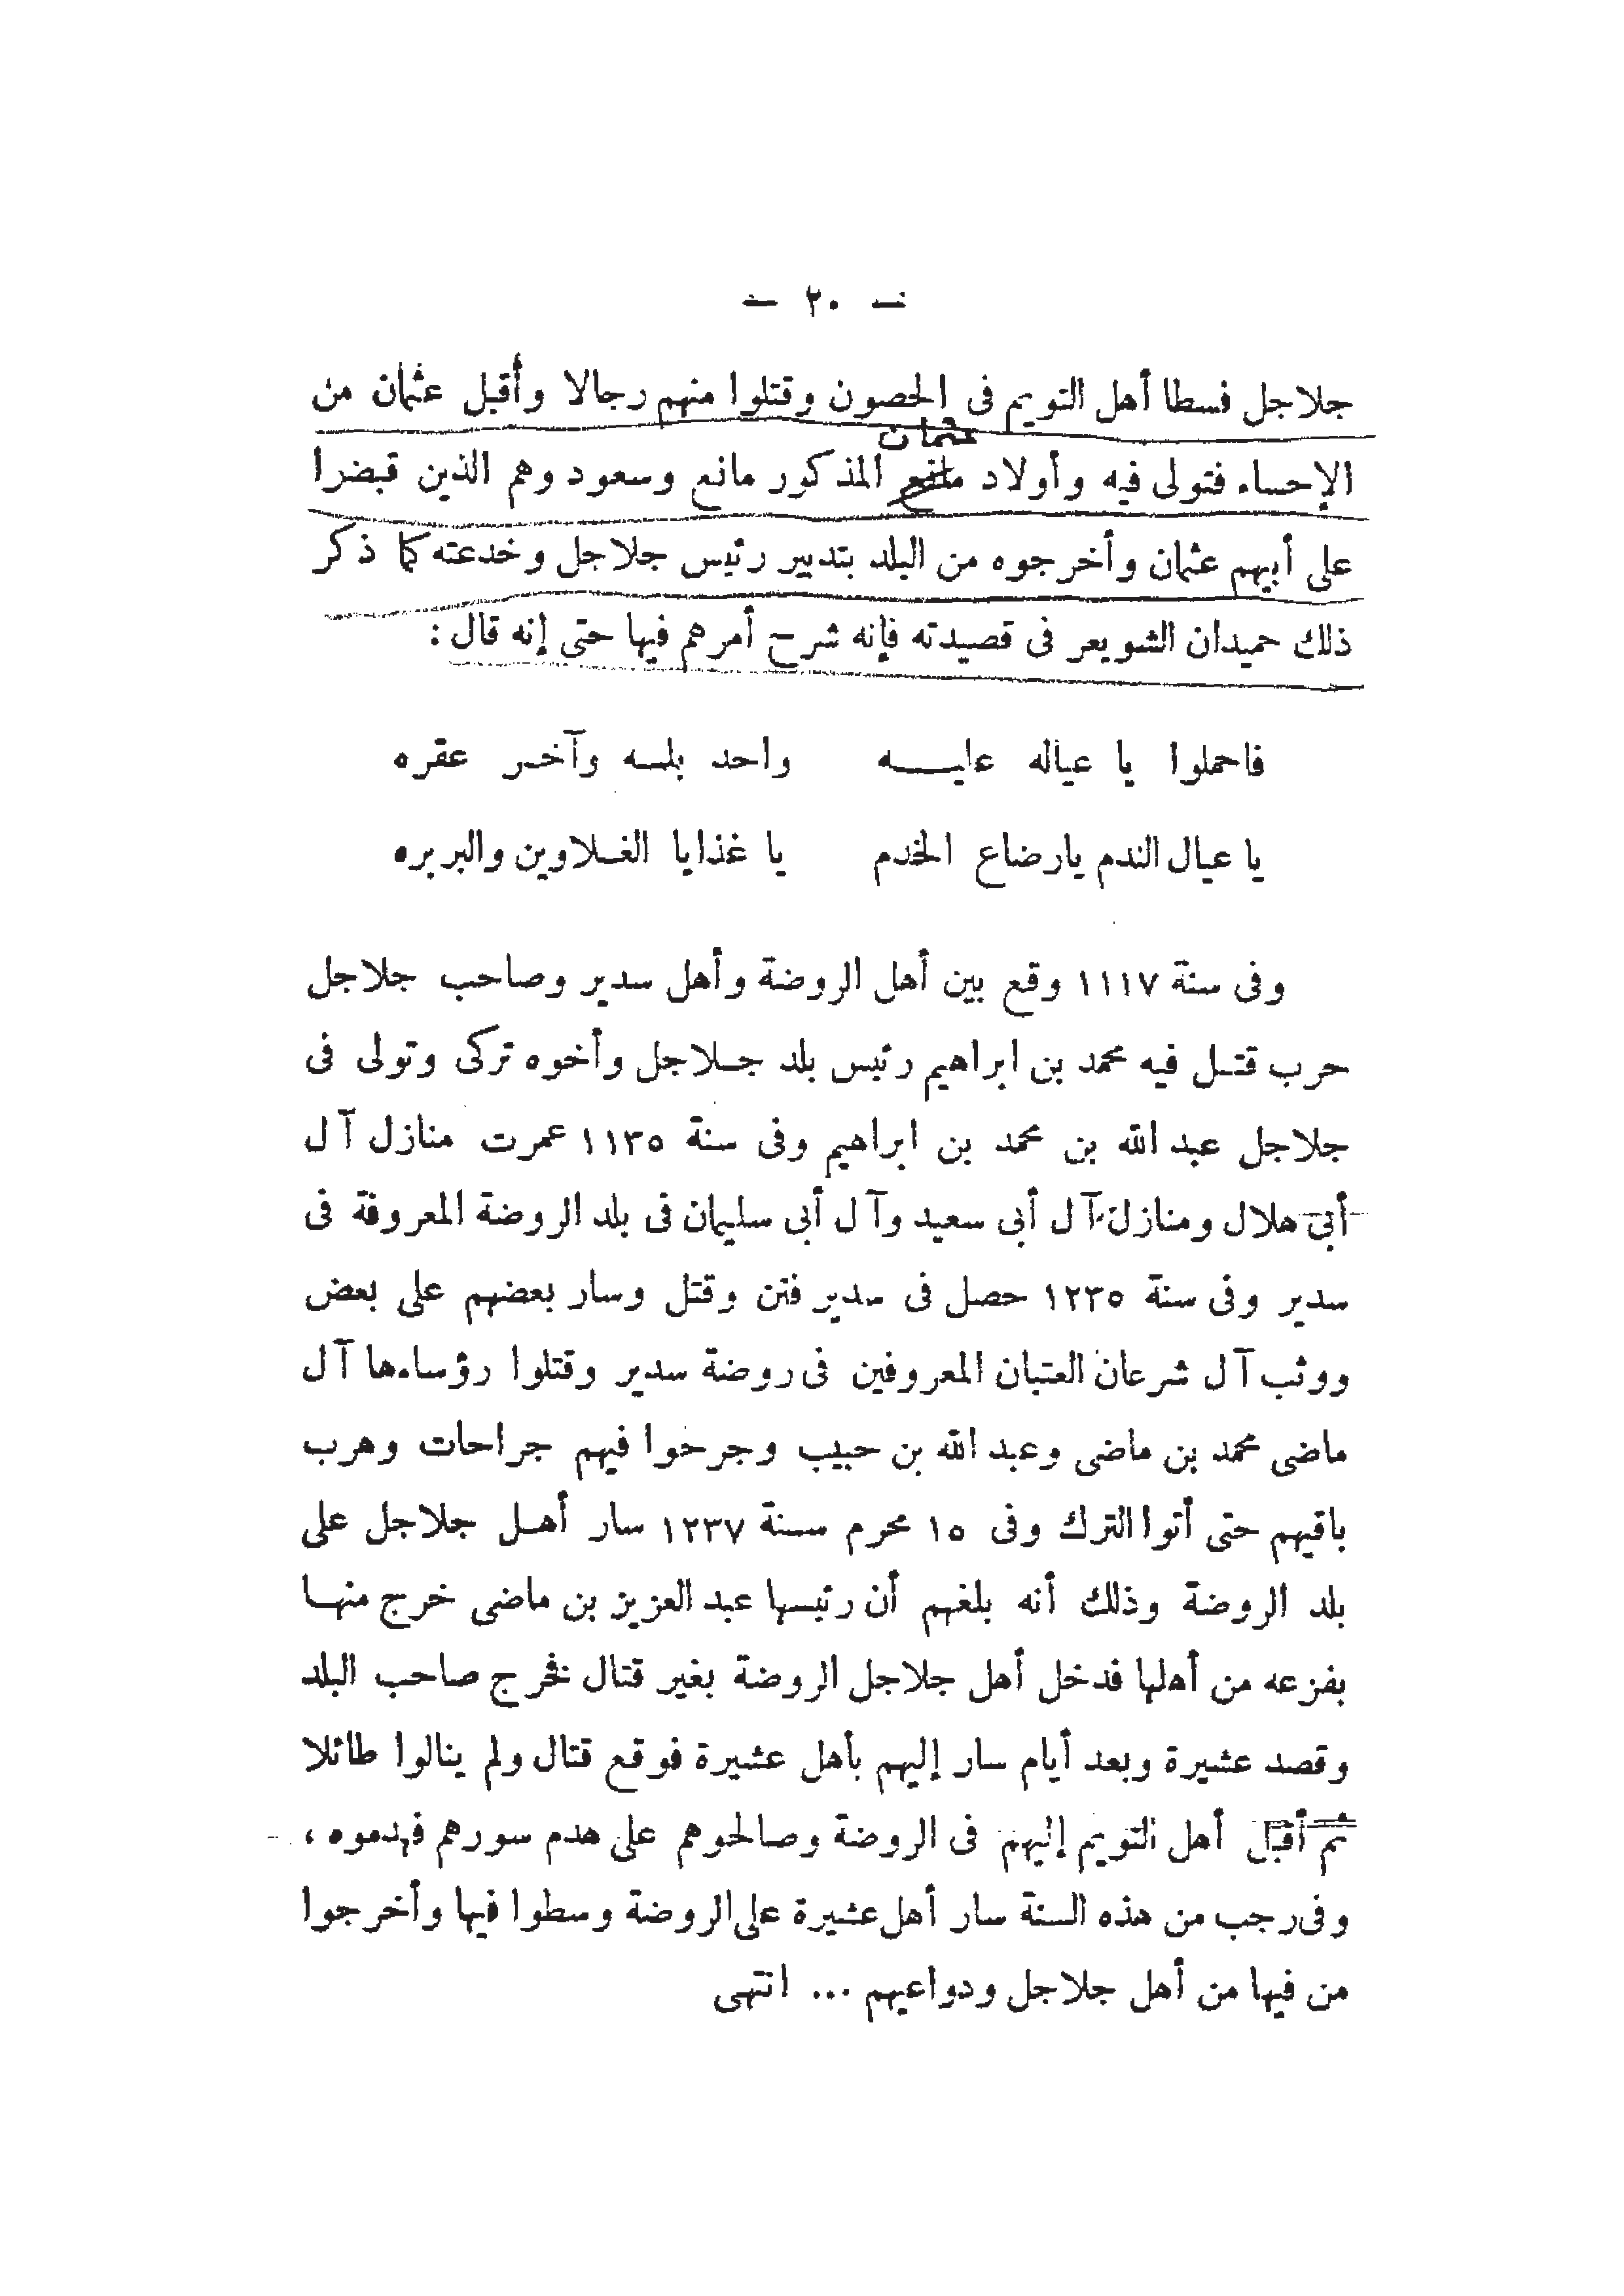 — ٢٠ —
جلاجل فسطا أهل التويم فى الحصون وقتلوا منهم رجالا وأقبل عثمان من
عثمان
الإحساء فتولى فيه وأولاد مانع المذكور مانع وسعود وهم الذين قبضرا
على أبيهم عثمان وأخرجوه من البلد بتدبير رئيس جلاجل وخدعته كما ذكر
ذلك حميدان الشويعر فى قصيدته فإنه شرح أمرهم فيها حتى إنه قال :
فاحملوا يا عياله عليـــه واحد بلسه وآخـر عقره
يا عيال الندم يارضاع الخدم يا غذايا الغـلاوين والبربره
وفى سنة ١١١٧ وقع بين أهل الروضة وأهل سدير وصاحب جلاجل
حرب قتـل فيه محمد بن ابراهيم رئيس بلد جـلاجل وأخوه تركى وتولى فى
جلاجل عبد الله بن محمد بن ابراهيم وفى سنة ١١٣٥ عمرت منازل آل
أبى هلال ومنازل آل أبى سعيد وآل أبى سليمان فى بلد الروضة المعروفة فى
سدير وفى سنة ١٢٣٥ حصل فى سدير فتن وقتل وسار بعضهم على بعض
ووثب آل شرعان العتبان المعروفين فى روضة سدير وقتلوا رؤساءها آل
ماضى محمد بن ماضى وعبد الله بن حبيب وجرحوا فيهم جراحات وهرب
باقيهم حتى أتوا الترك وفى ١٥ محرم سـنة ١٢٣٧ سار أهـل جلاجل على
بلد الروضة وذلك أنه بلغهم أن رئيسها عبد العزيز بن ماضى خرج منهـا
بفزعه من أهلها فدخل أهل جلاجل الروضة بغير قتال فخرج صاحب البلد
وقصد عشيرة وبعد أيام سار إليهم بأهل عشيرة فوقع قتال ولم ينالوا طائلا
ثم أقبل أهل التويم إليهم فى الروضة وصالحوهم على هدم سورهم فهدموه ،
وفى رجب من هذه السنة سار أهل عشيرة على الروضة وسطوا فيها وأخرجوا
من فيها من أهل جلاجل ودواعيهم ... انتهى